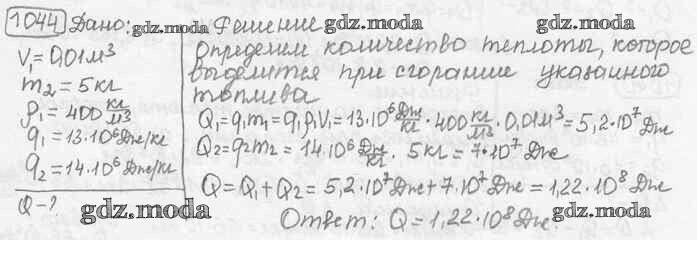 1044 Дано: gdz.moda Решение gdz.moda gdz.moda
V₁=0,01м³
m₂=5кг
ρ₁=400 кг/м³
q₁=13·10⁶Дж/кг
q₂=14·10⁶Дж/кг
Q-?
gdz.moda
Определим количество теплоты, которое
выделится при сгорание указанного
топлива
Q₁=q₁m₁=q₁ρ₁V₁=13·10⁶ Дж/кг·400 кг/м³·0,01м³=5,2·10⁷Дж
Q₂=q₂m₂=14·10⁶ Дж/кг·5кг=7·10⁷Дж
Q=Q₁+Q₂=5,2·10⁷Дж+7·10⁷Дж=1,22·10⁸Дж
Ответ: Q=1,22·10⁸Дж.
gdz.moda gdz.moda